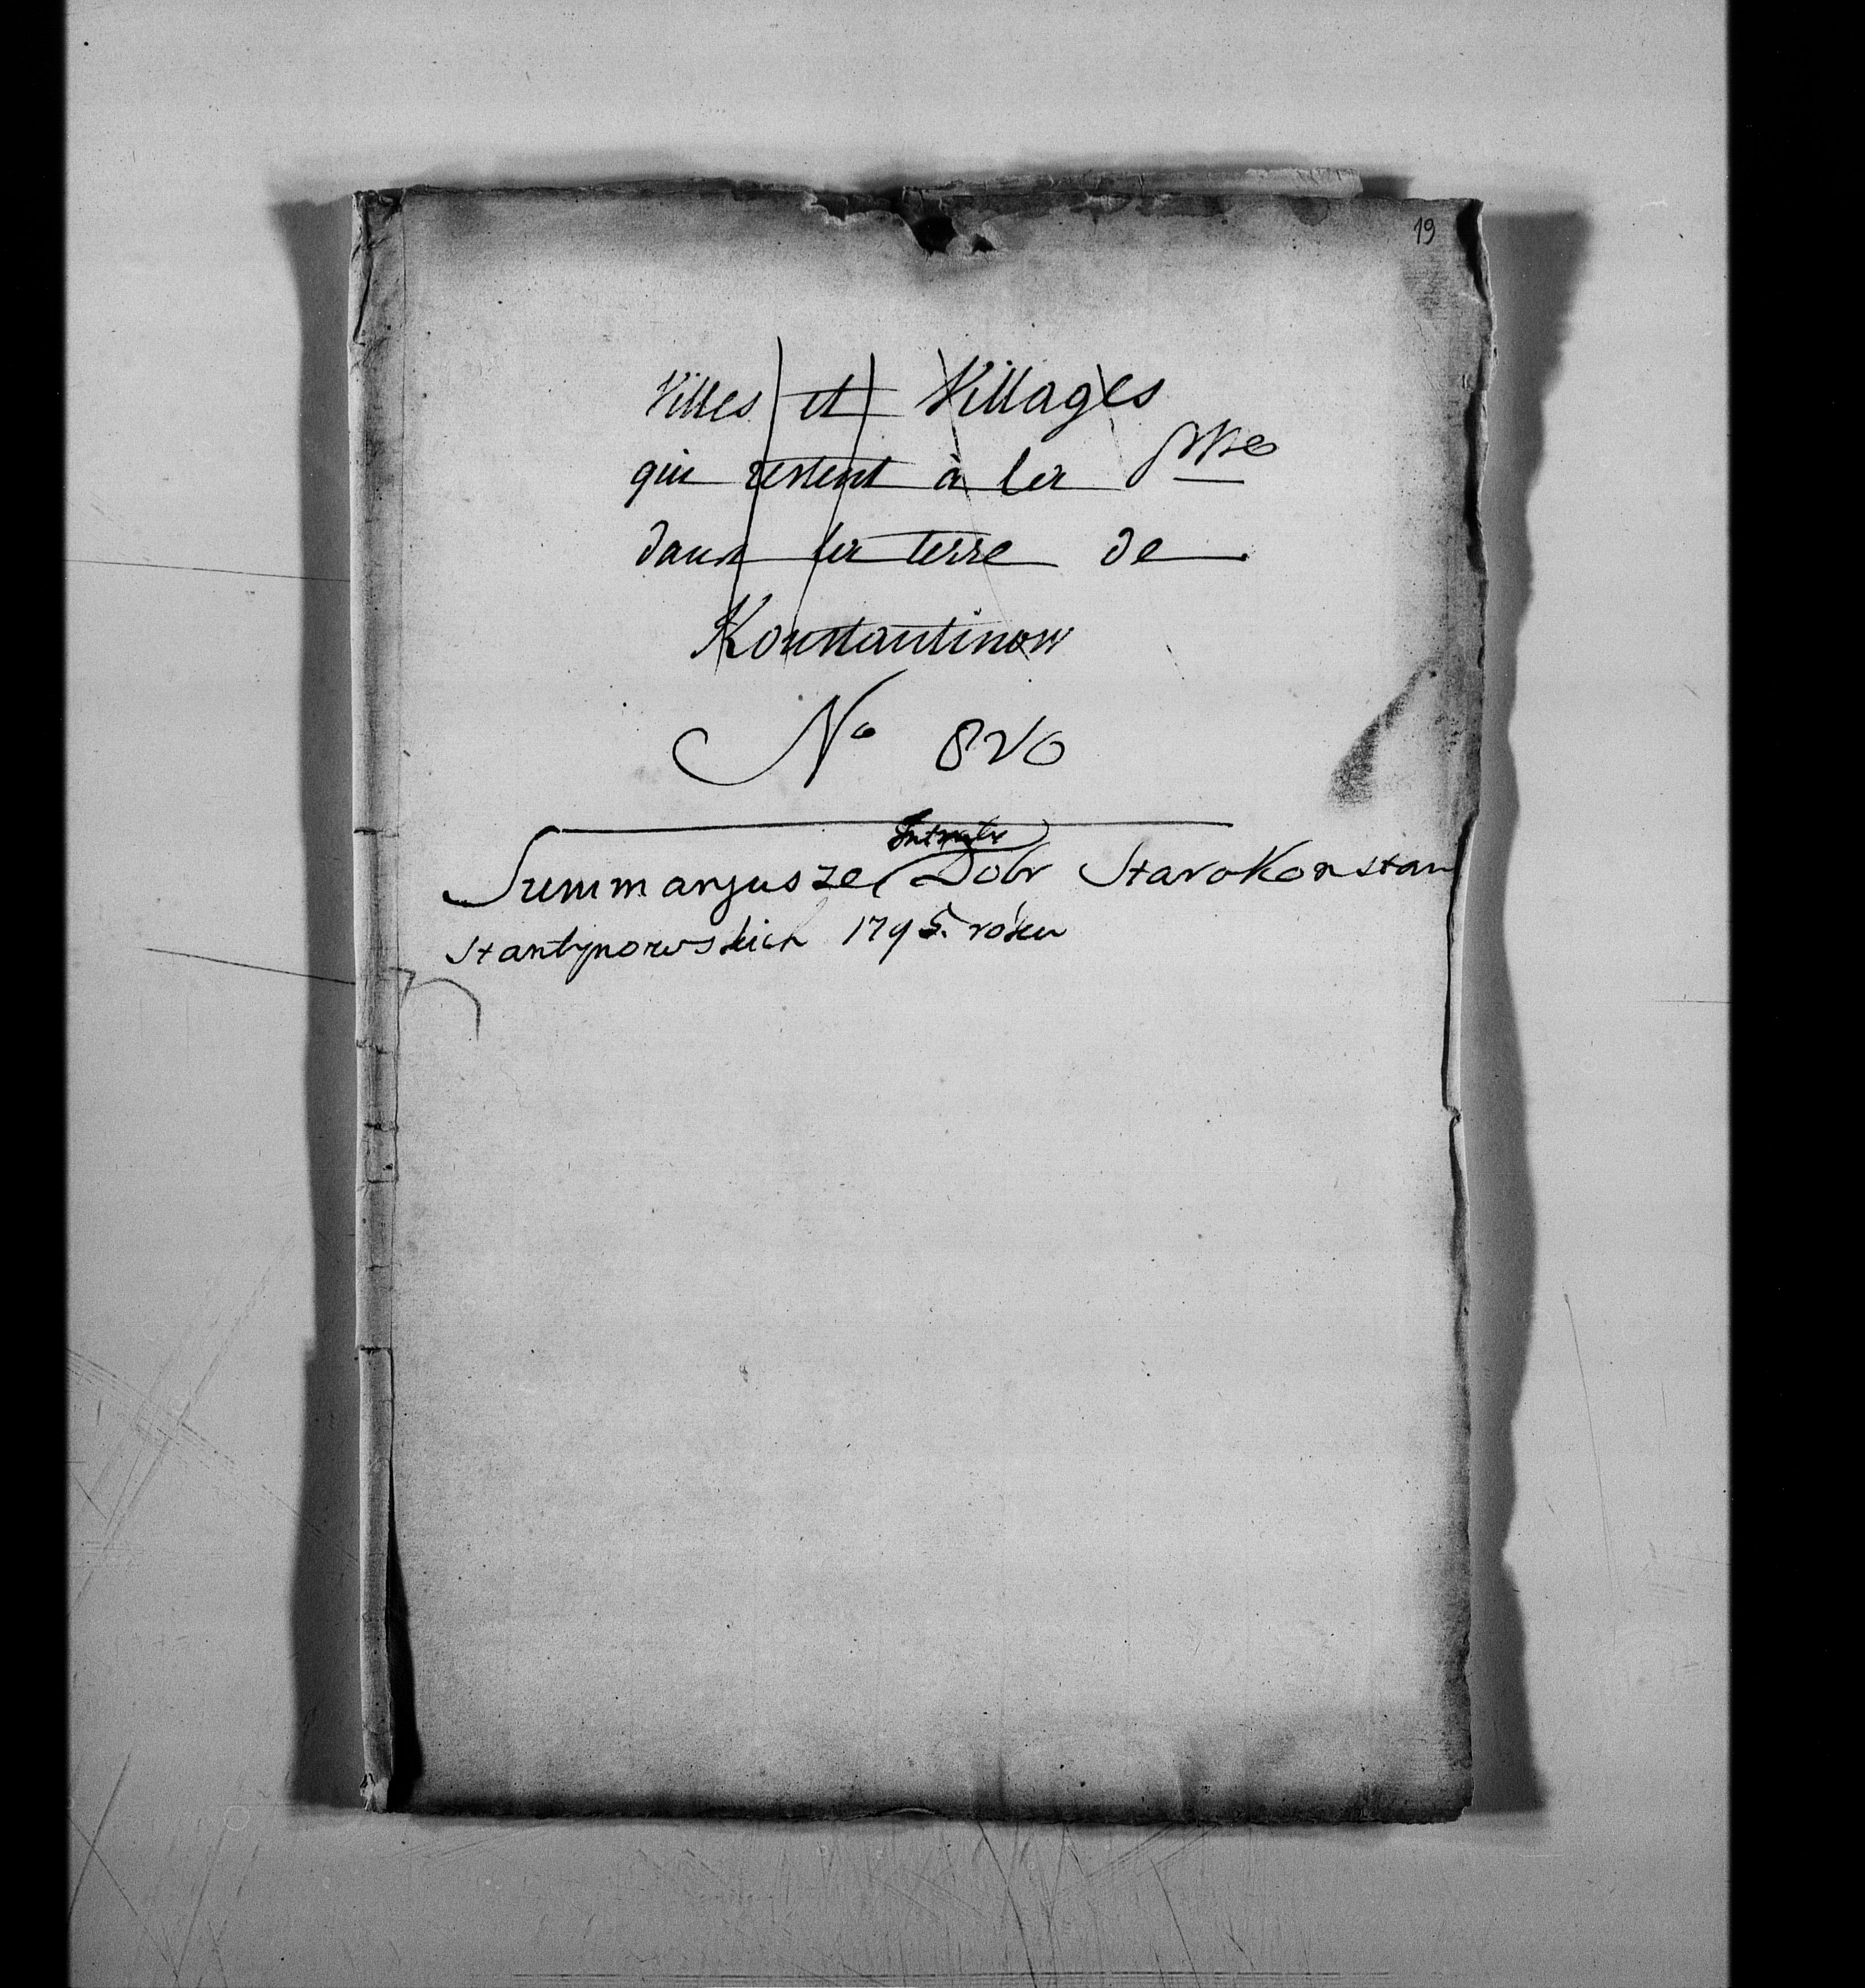 19
Villes et Villages
qui restent à la Psse
dans la terre de
Konstantinow
No 820
Intraty
Summaryusze Dobr StaroKonstan
stantynowskich 1795. roku